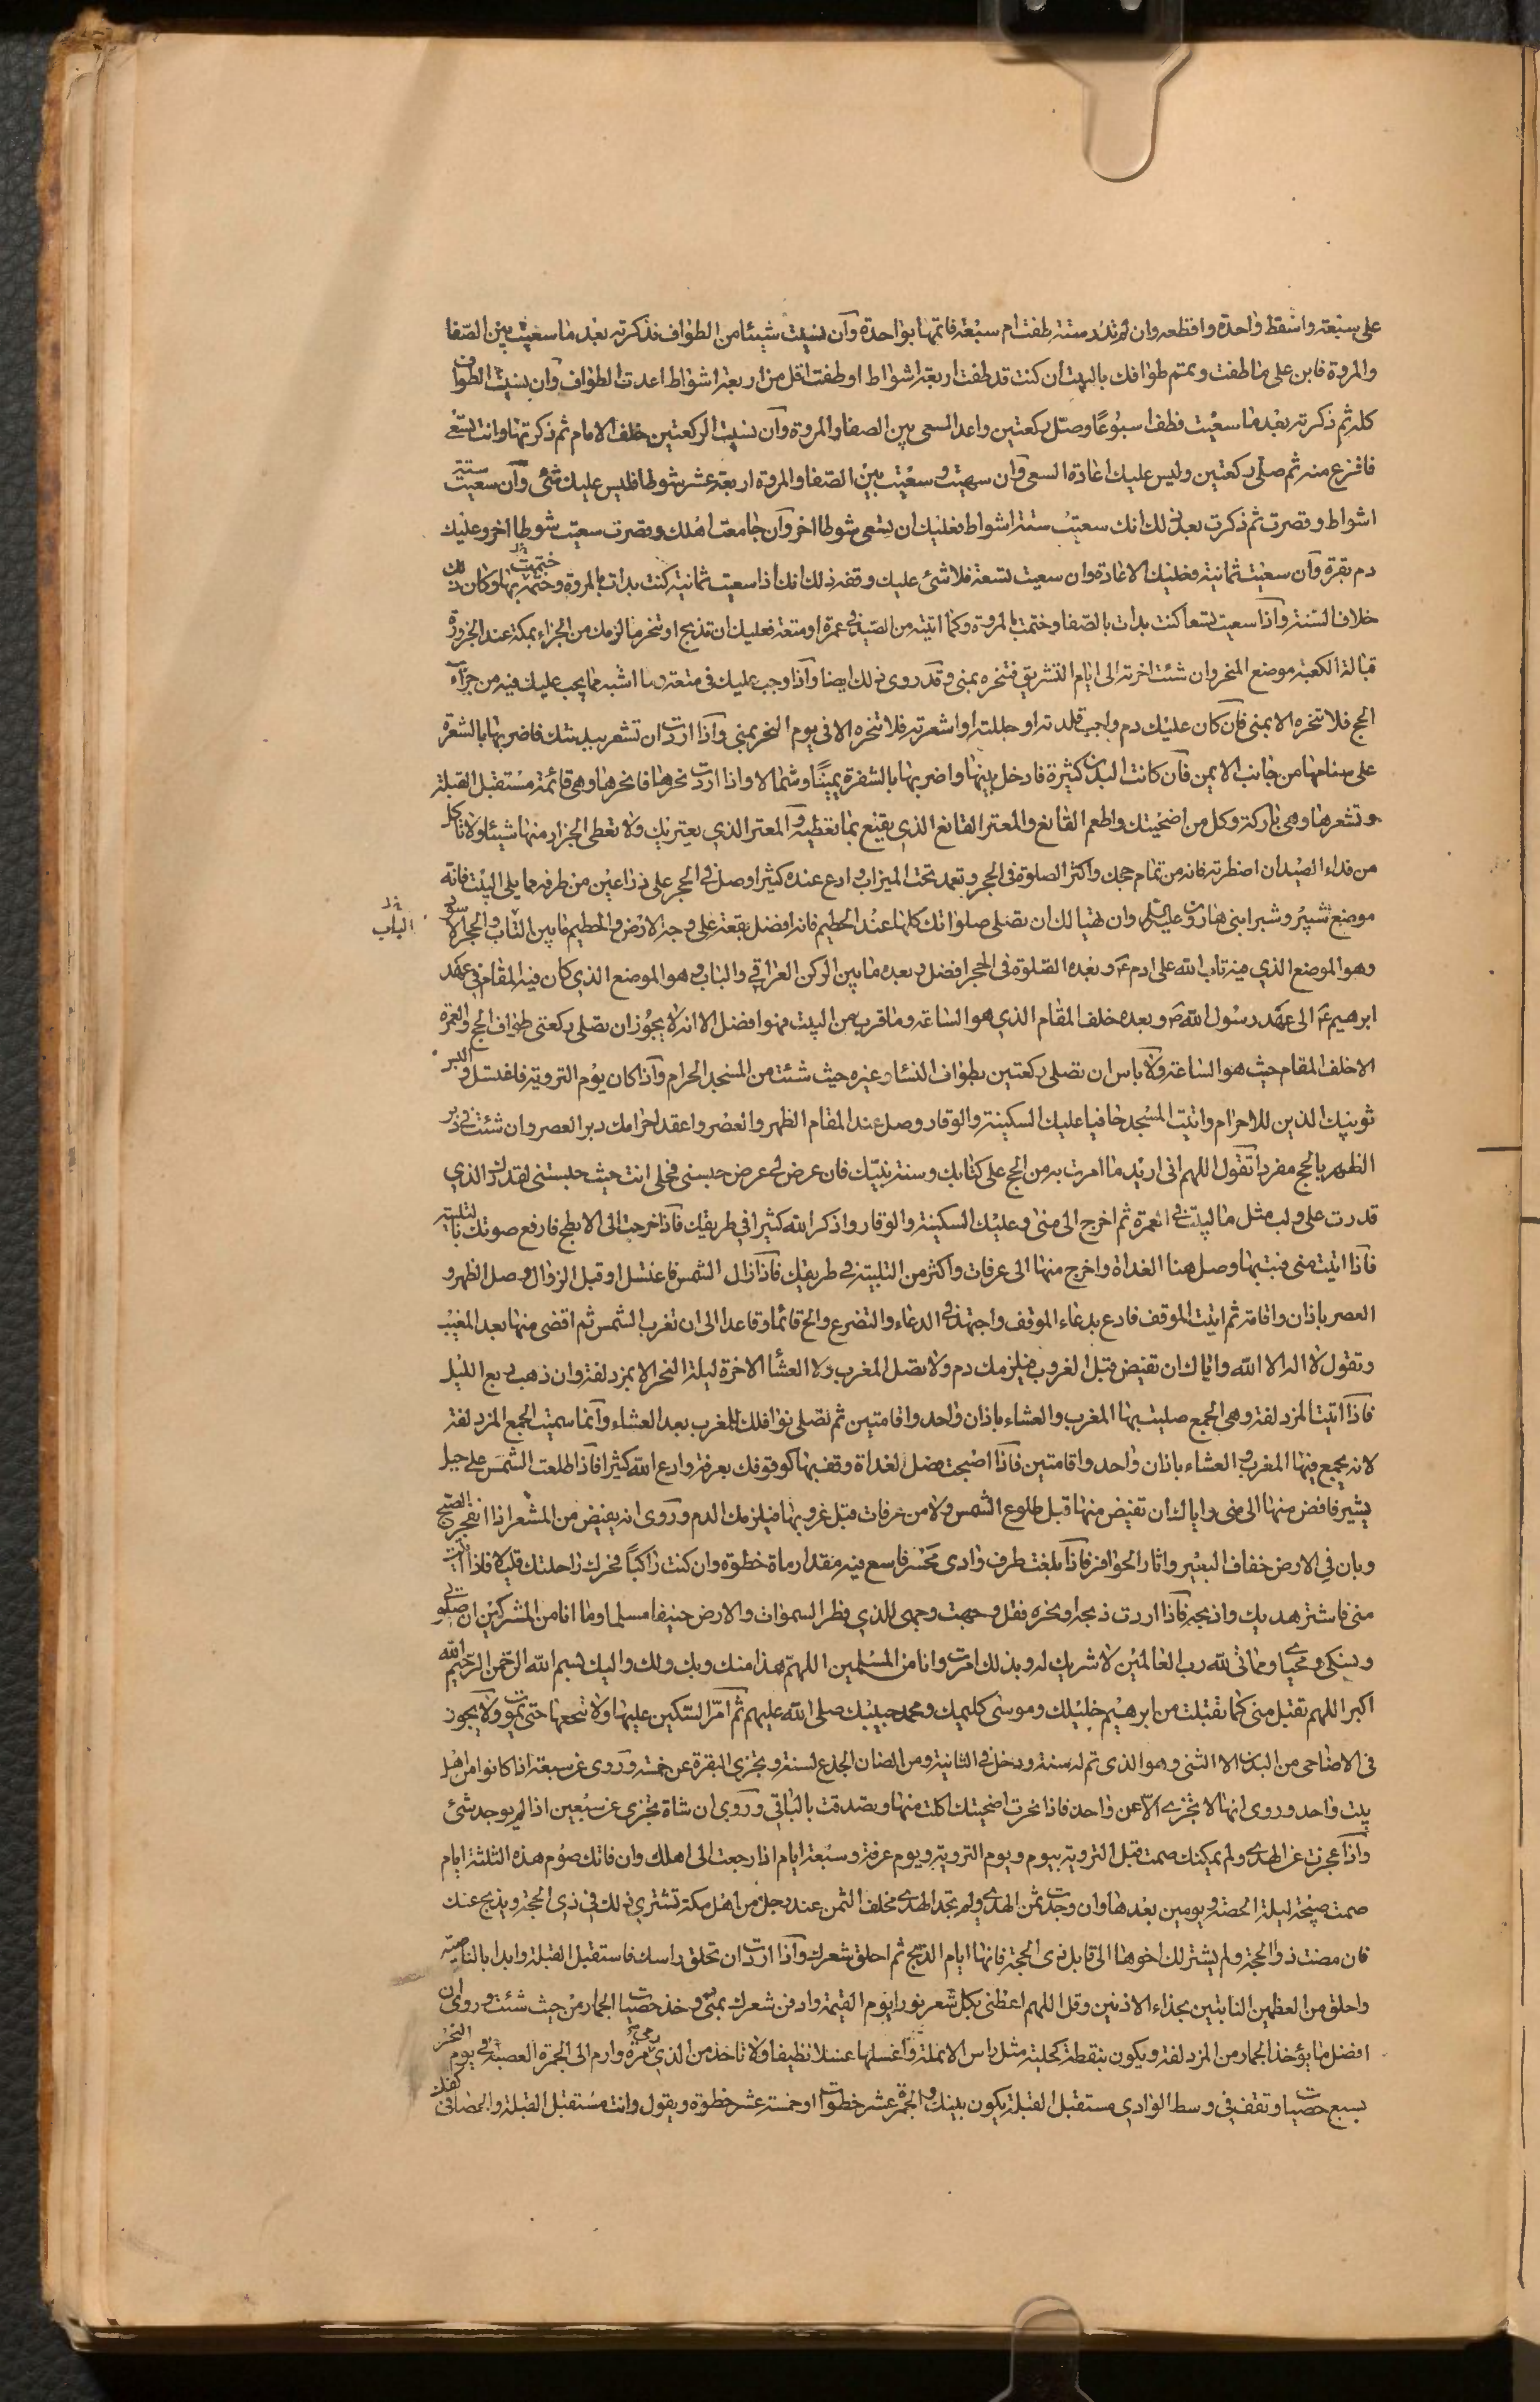 على سبعة واسقط واحدة واقطعه وان لم تدر ستة طفت ام سبعة فاتمها بواحدة وان نسيت شيئا من الطواف فذكرته بعد ما سعيت بين الصفا
والمروة فابن على ما طفت وتمم طوافك بالبيت ان كنت قد طفت اربعة اشواط او طفت اقل من اربعة اشواط اعدت الطواف وان نسيت الطواف
كله ثم ذكرته بعد ما سعيت فطف اسبوعًا وصل ركعتين واعد السعى بين الصفا والمروة وان نسيت الركعتين خلف الامام ثم ذكرتها وانت تسعى
فافرغ منه ثم صلى ركعتين وليس عليك اعادة السعى وان سهيت وسعيت بين الصفا والمروة اربعة عشر شوطا فليس عليك شئ وان سعيت ستة
اشواط وقصرت ثم ذكرت بعد ذلك انك سعيت ستة اشواط فعليك ان تسعى شوطا اخر وان جامعت اهلك وقصرت سعيت شوطا اخر وعليك
دم بقرة وان سعيت ثمانية فعليك الاعادة وان سعيت تسعة فلا شئ عليك وفقه ذلك انك اذا سعيت ثمانية كنت بدات بالمروة وختمت بها وكان ذلك
خلاف السنة واذا سعيت تسعا كنت بدات بالصفا وختمت بالمروة وكلما اتيته من الصيد في عمرة او متعة فعليك ان تذبح او تنحر ما لزمك من الجزاء بمكة عند الجزورة
قبالة الكعبة موضع المنحر وان شئت اخرته الى ايام التشريق فتنحره بمنى وقد روى ذلك ايضا واذا وجب عليك فى متعة وما اشبه مما يجب عليك فيه من جزآء
الحج فلا تنحره الا بمنى فان كان عليك دم واجب قلدته او جللته او اشعرته فلا تنحره الا فى يوم النحر بمنى واذا اردت ان تشعر بدنتك فاضربها بالشفرة
على سنامها من جانب الايمن فان كانت البدن كثيرة فادخل بينها واضربها بالشفرة يمينًا وشمالا واذا اردت نحرها فانحرها وهى قائمة مستقبل القبلة
وتشعرها وهى باركة وكل من اضحيتك واطعم القانع والمعتر القانع الذي يقنع بما تعطيه والمعتر الذي يعتريك ولا تعطى الجزار منها شيئا ولا تاكل
من فداء الصيد ان اضطرته فانه من تمام حجك واكثر الصلوة فى الحجر وتعمد تحت الميزاب وادع عنده كثيرا وصل في الحجر على ذراعين من طرفه مما يلي البيت فانه
موضع شبير وشبر ابنى هارون عليه السلم وان تهيا لك ان تصلى صلواتك كلها عند الحطيم فانه افضل بقعة على وجه الارض والحطيم ما بين الباب والحجر الاسود
الباب
وهو الموضع الذي فيه تاب الله على ادم ع وبعده الصلوة فى الحجر افضل وبعده ما بين الركن العراقي والباب وهو الموضع الذي كان فيه المقام فى عهد
ابرهيم ع الى عهد رسول الله ص وبعده خلف المقام الذي هو الساعة وما قرب من البيت فهو افضل الا انه لا يجوز ان تصلى ركعتى طواف الحج والعمرة
الا خلف المقام حيث هو الساعة ولا باس ان تصلى ركعتين بطواف النساء وغيره حيث شئت من المسجد الحرام واذا كان يوم التروية فاغتسل والبس
ثوبيك الذين للاحرام وائت المسجد حافيا عليك السكينة والوقار وصل عند المقام الظهر والعصر واعقد احرامك دبر العصر وان شئت في دبر
الظهر بالحج مفردا تقول اللهم انى اريد ما امرت به من الحج على كتابك وسنة نبيك فان عرض لى عرض حبسنى فحلى انت حيث حبستنى لقدرك الذي
قدرت على ولب مثل ما لبيت فى العمرة ثم اخرج الى منى وعليك السكينة والوقار واذكر الله كثيرا في طريقك فاذا خرجت الى الابطح فارفع صوتك بالتلبية
فاذا اتيت منى فبت بها وصل هنا الغداة واخرج منها الى عرفات واكثر من التلبية فى طريقك فاذا زال الشمس فاغتسل او قبل الزوال وصل الظهر و
العصر باذان واقامة ثم ايت الموقف فادع بدعاء الموقف واجتهد فى الدعاء والتضرع والح قائما وقاعدا الى ان تغرب الشمس ثم افض منها بعد المغيب
وتقول لا اله الا الله واياك ان تفيض قبل الغروب فيلزمك دم ولا تصل المغرب ولا العشاء الاخرة ليلة النحر الا بمزدلفة وان ذهب ربع الليل
فاذا اتيت المزدلفة وهى الجمع صليت بها المغرب والعشاء باذان واحد واقامتين ثم تصلى نوافلك للمغرب بعد العشاء وانما سميت الجمع المزدلفة
لانه يجمع فيها المغرب والعشاء باذان واحد واقامتين فاذا اصبحت فصل لغداة وقف بها كوقوفك بعرفة وادع الله كثيرا فاذا طلعت الشمس على جبل
بثير فافض منها الى منى واياك ان تفيض منها قبل طلوع الشمس ولا من عرفات قبل غروبها فيلزمك الدم وروى انه يفيض من المشعر اذا انفجر الصبح
وبان في الارض خفاف البعير واثار الحوافر فاذا بلغت طرف وادى محسر فاسع فيه مقدار ماة خطوة وان كنت راكباً فحرك راحلتك قليلا فاذا اتيت
منى فاشتر هديك واذبحه فاذا اردت ذبحه او نحره فقل وجهت وجهى للذي فطر السموات والارض حنيفا مسلما وما انا من المشركين ان صلوتى
ونسكى ومحياي ومماتى لله رب العالمين لا شريك له وبذلك امرت وانا من المسلمين اللهم هذا منك وبك ولك واليك بسم الله الرحمن الرحيم الله
اكبر اللهم تقبل منى كما تقبلت من ابرهيم خليلك وموسى كليمك ومحمد حبيبك صلى الله عليهم ثم امر السكين عليها ولا تنخعها حتى تموت ولا يجوز
فى الاضاحى من البدن الا الثنى وهو الذى تم له سنة ودخل فى الثانية ومن الضان الجذع لسنة وتجزى البقرة عن خمسة وروى عن سبعة اذا كانوا من اهل
بيت واحد وروى انها لا تجزى الا عن واحد فاذا نحرت اضحيتك اكلت منها وتصدقت بالباقي وروى ان شاة تجزى عن سبعين اذا لم يوجد شئ
واذا عجزت عن الهدي ولم يمكنك صمت قبل التروية بيوم ويوم التروية ويوم عرفة وسبعة ايام اذا رجعت الى اهلك وان فاتك صوم هذه الثلثة ايام
صمت صبيحة ليلة الحصبة ويومين بعدها وان وجدت ثمن الهدي ولم تجد الهدي فخلف الثمن عند رجل من اهل مكة تشترى ذلك في ذى الحجة ويذبح عنك
فان مضت ذو الحجة ولم يشتر لك اخرها الى قابل ذى الحجة فانها ايام الذبح ثم احلق شعرك واذا اردت ان تحلق راسك فاستقبل القبلة وابدا بالناصية
واحلق من العظمين النابتين بحذاء الاذنين وقل اللهم اعطنى بكل شعر نورا يوم القيمة وادفن شعرك بمنى وخذ حصيات الجمار من حيث شئت وروى ان
افضل ما يؤخذ الجمار من المزدلفة ويكون منقطة كحلية مثل راس الانملة واغسلها غسلا نظيفا ولا تاخذ من الذي رمى مرة وارم الى الجمرة العصبة فى يوم النحر
بسبع حصيات وتقف فى وسط الوادى مستقبل القبلة يكون بينك والجمرة عشر خطوات او خمسة عشر خطوة ويقول وانت مستقبل القبلة والحصا فى كفك